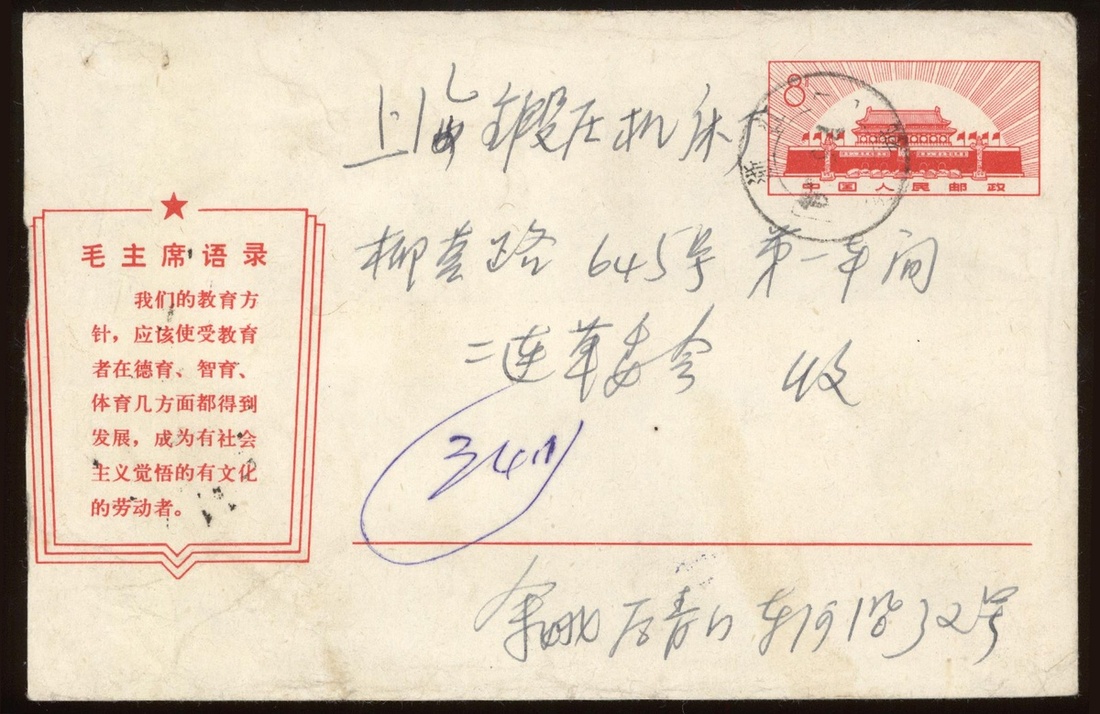 8
中国人民邮政
上海锻压机床厂
柳营路 645号 第一车间
二连革委会 收
毛主席语录
我们的教育方
针，应该使受教育
者在德育、智育、
体育几方面都得到
发展，成为有社会
主义觉悟的有文化
的劳动者。
余姚 东 32号